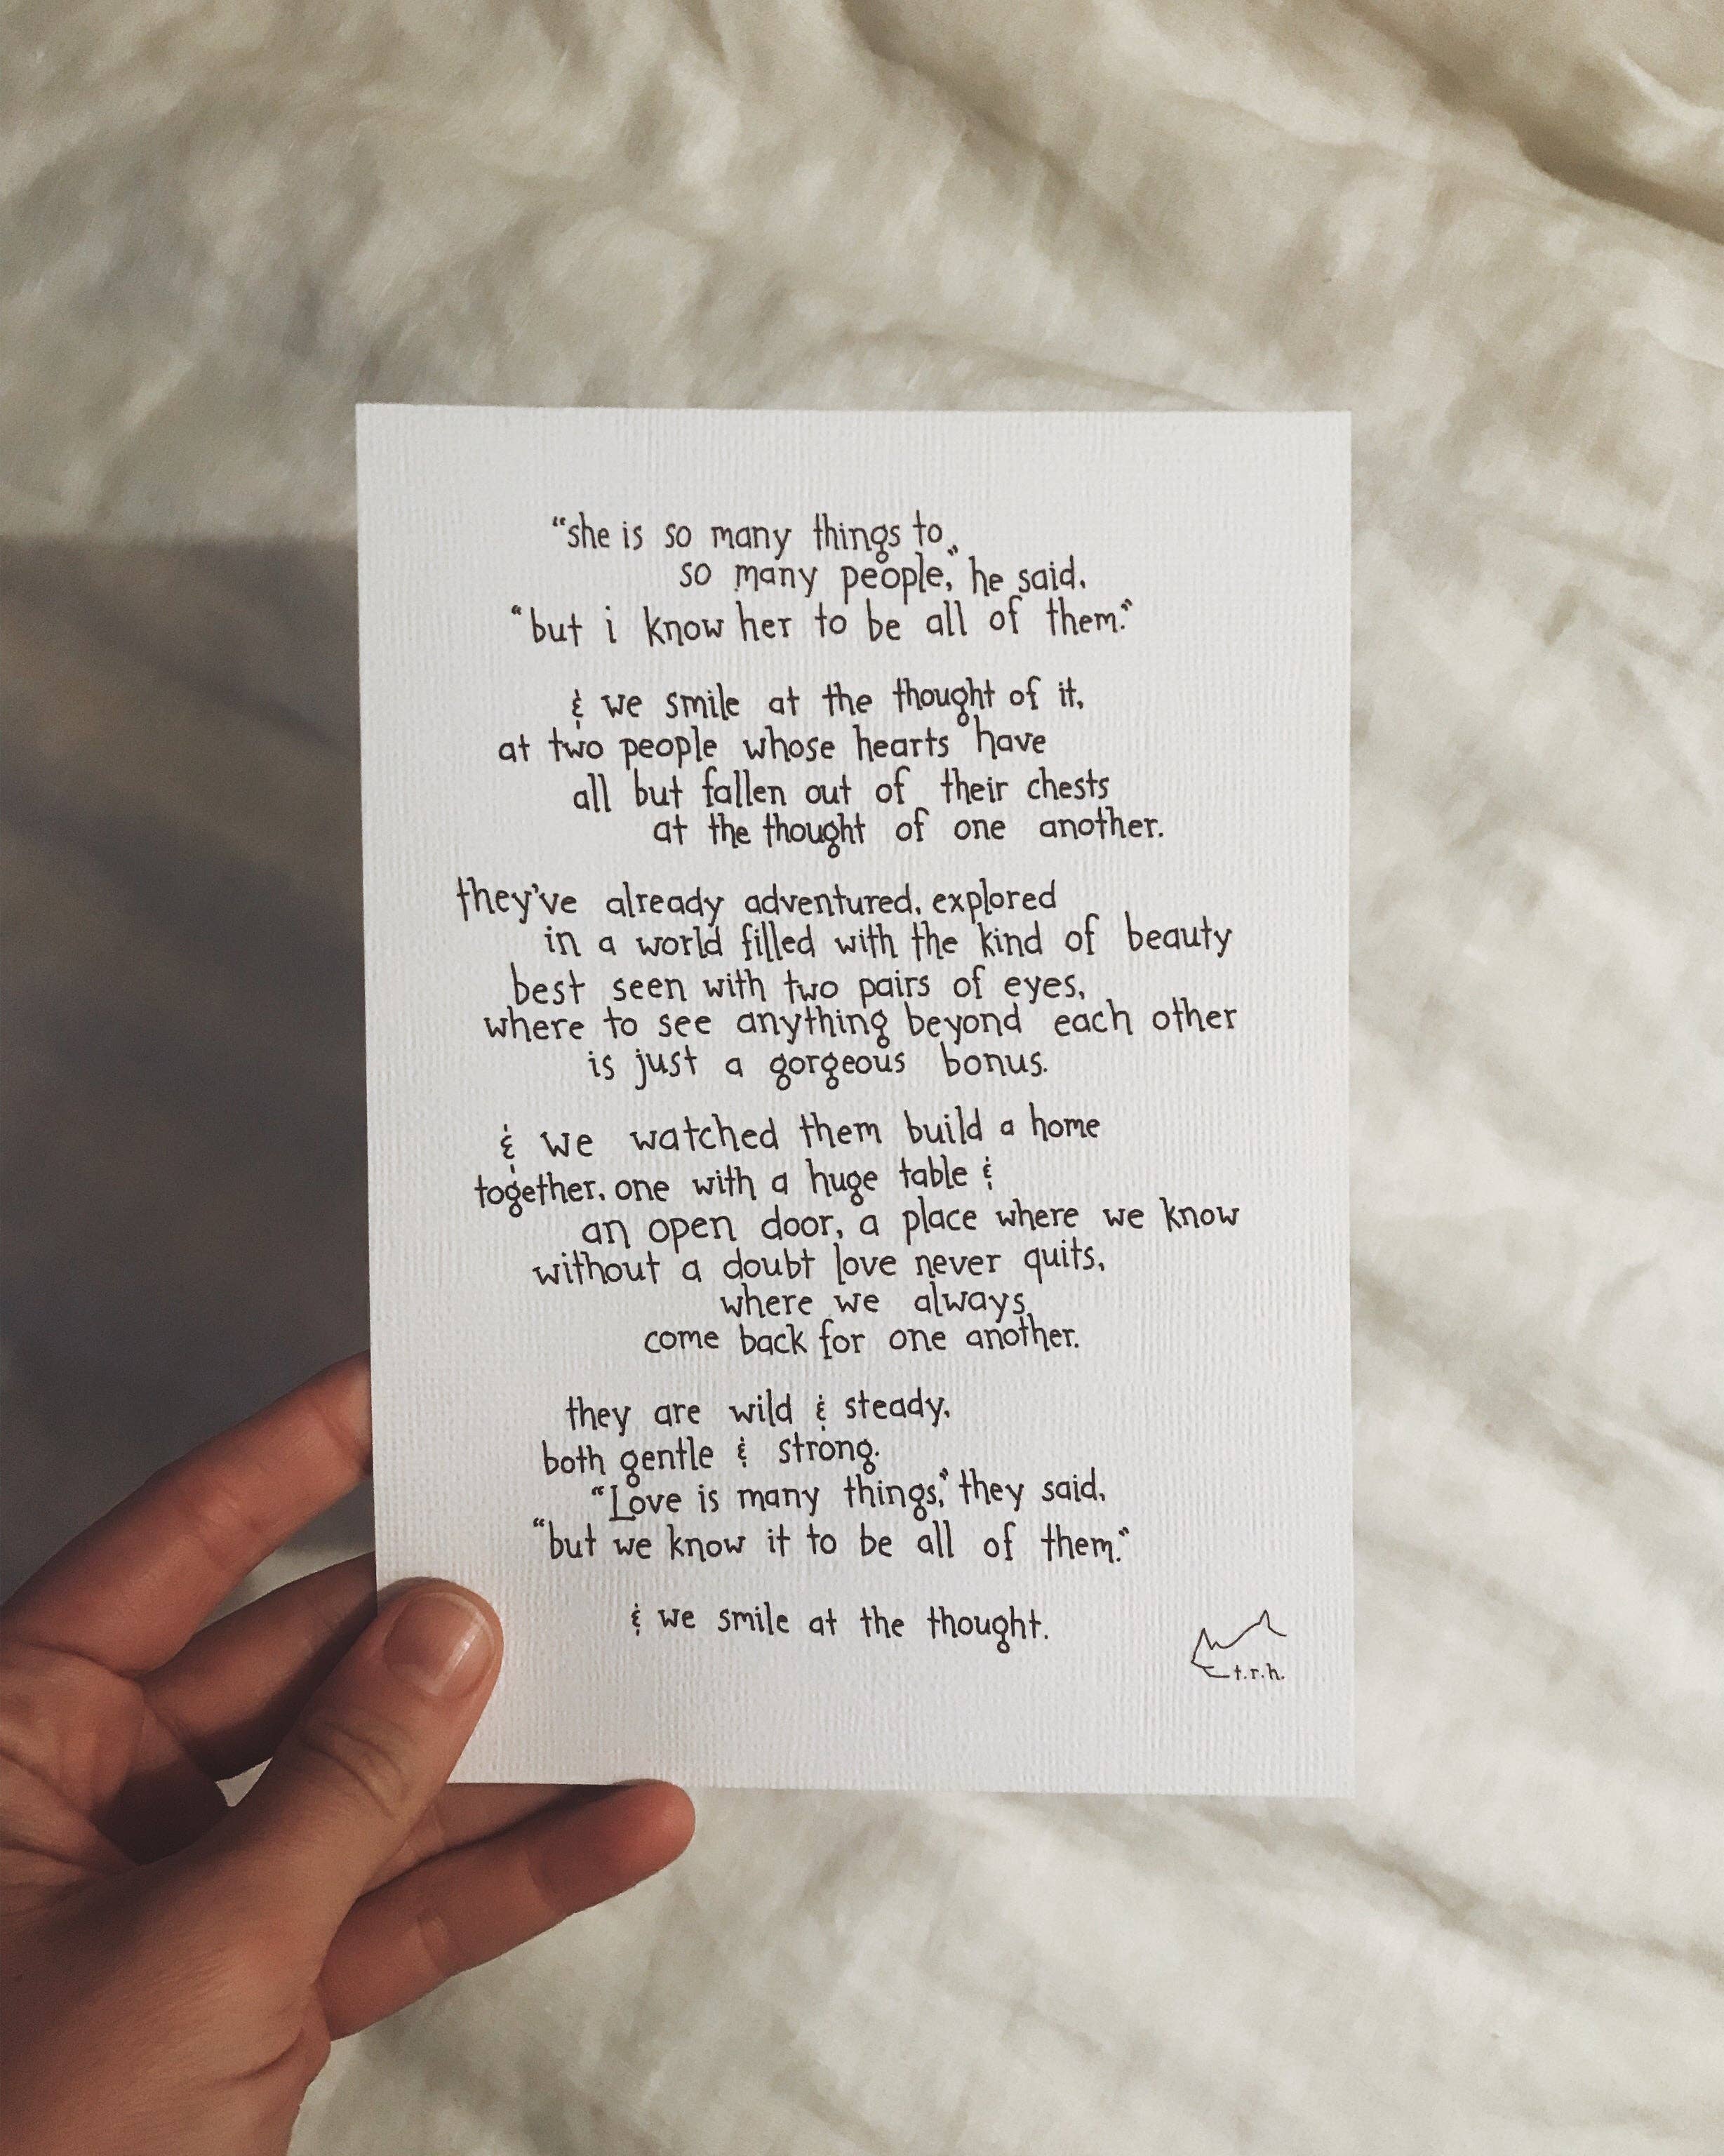 “she is so many things to
so many people,” he said,
“but i know her to be all of them.”
& we smile at the thought of it,
at two people whose hearts have
all but fallen out of their chests
at the thought of one another.
they've already adventured, explored
in a world filled with the kind of beauty
best seen with two pairs of eyes,
where to see anything beyond each other
is just a gorgeous bonus.
& we watched them build a home
together, one with a huge table &
an open door, a place where we know
without a doubt love never quits,
where we always
come back for one another.
they are wild & steady,
both gentle & strong.
“Love is many things,” they said,
“but we know it to be all of them.”
& we smile at the thought.
t.r.h.